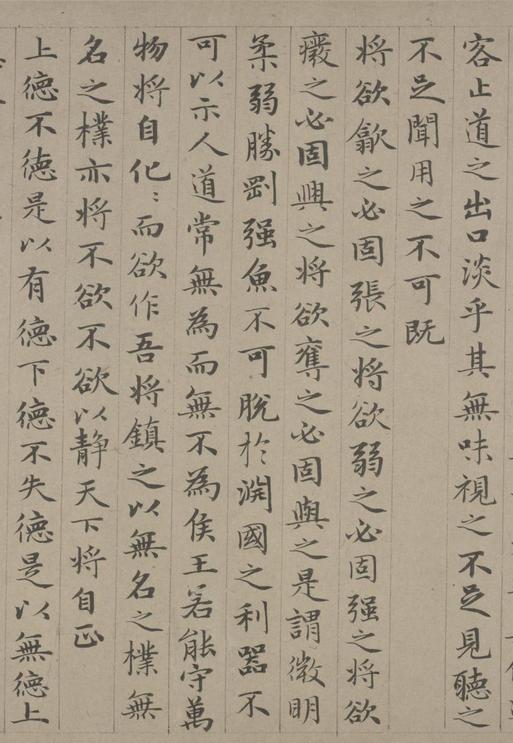 客止道之出口淡乎其無味視之不足見聽之
不足聞用之不可既
將欲歙之必固張之將欲弱之必固强之將欲
癈之必固興之將欲奪之必固與之是謂微明
柔弱勝剛强魚不可脫於淵國之利器不
可以示人道常無為而無不為侯王若能守萬
物將自化〻而欲作吾將鎮之以無名之樸無
名之樸亦將不欲不欲以静天下將自正
上德不德是以有德下德不失德是以無德上